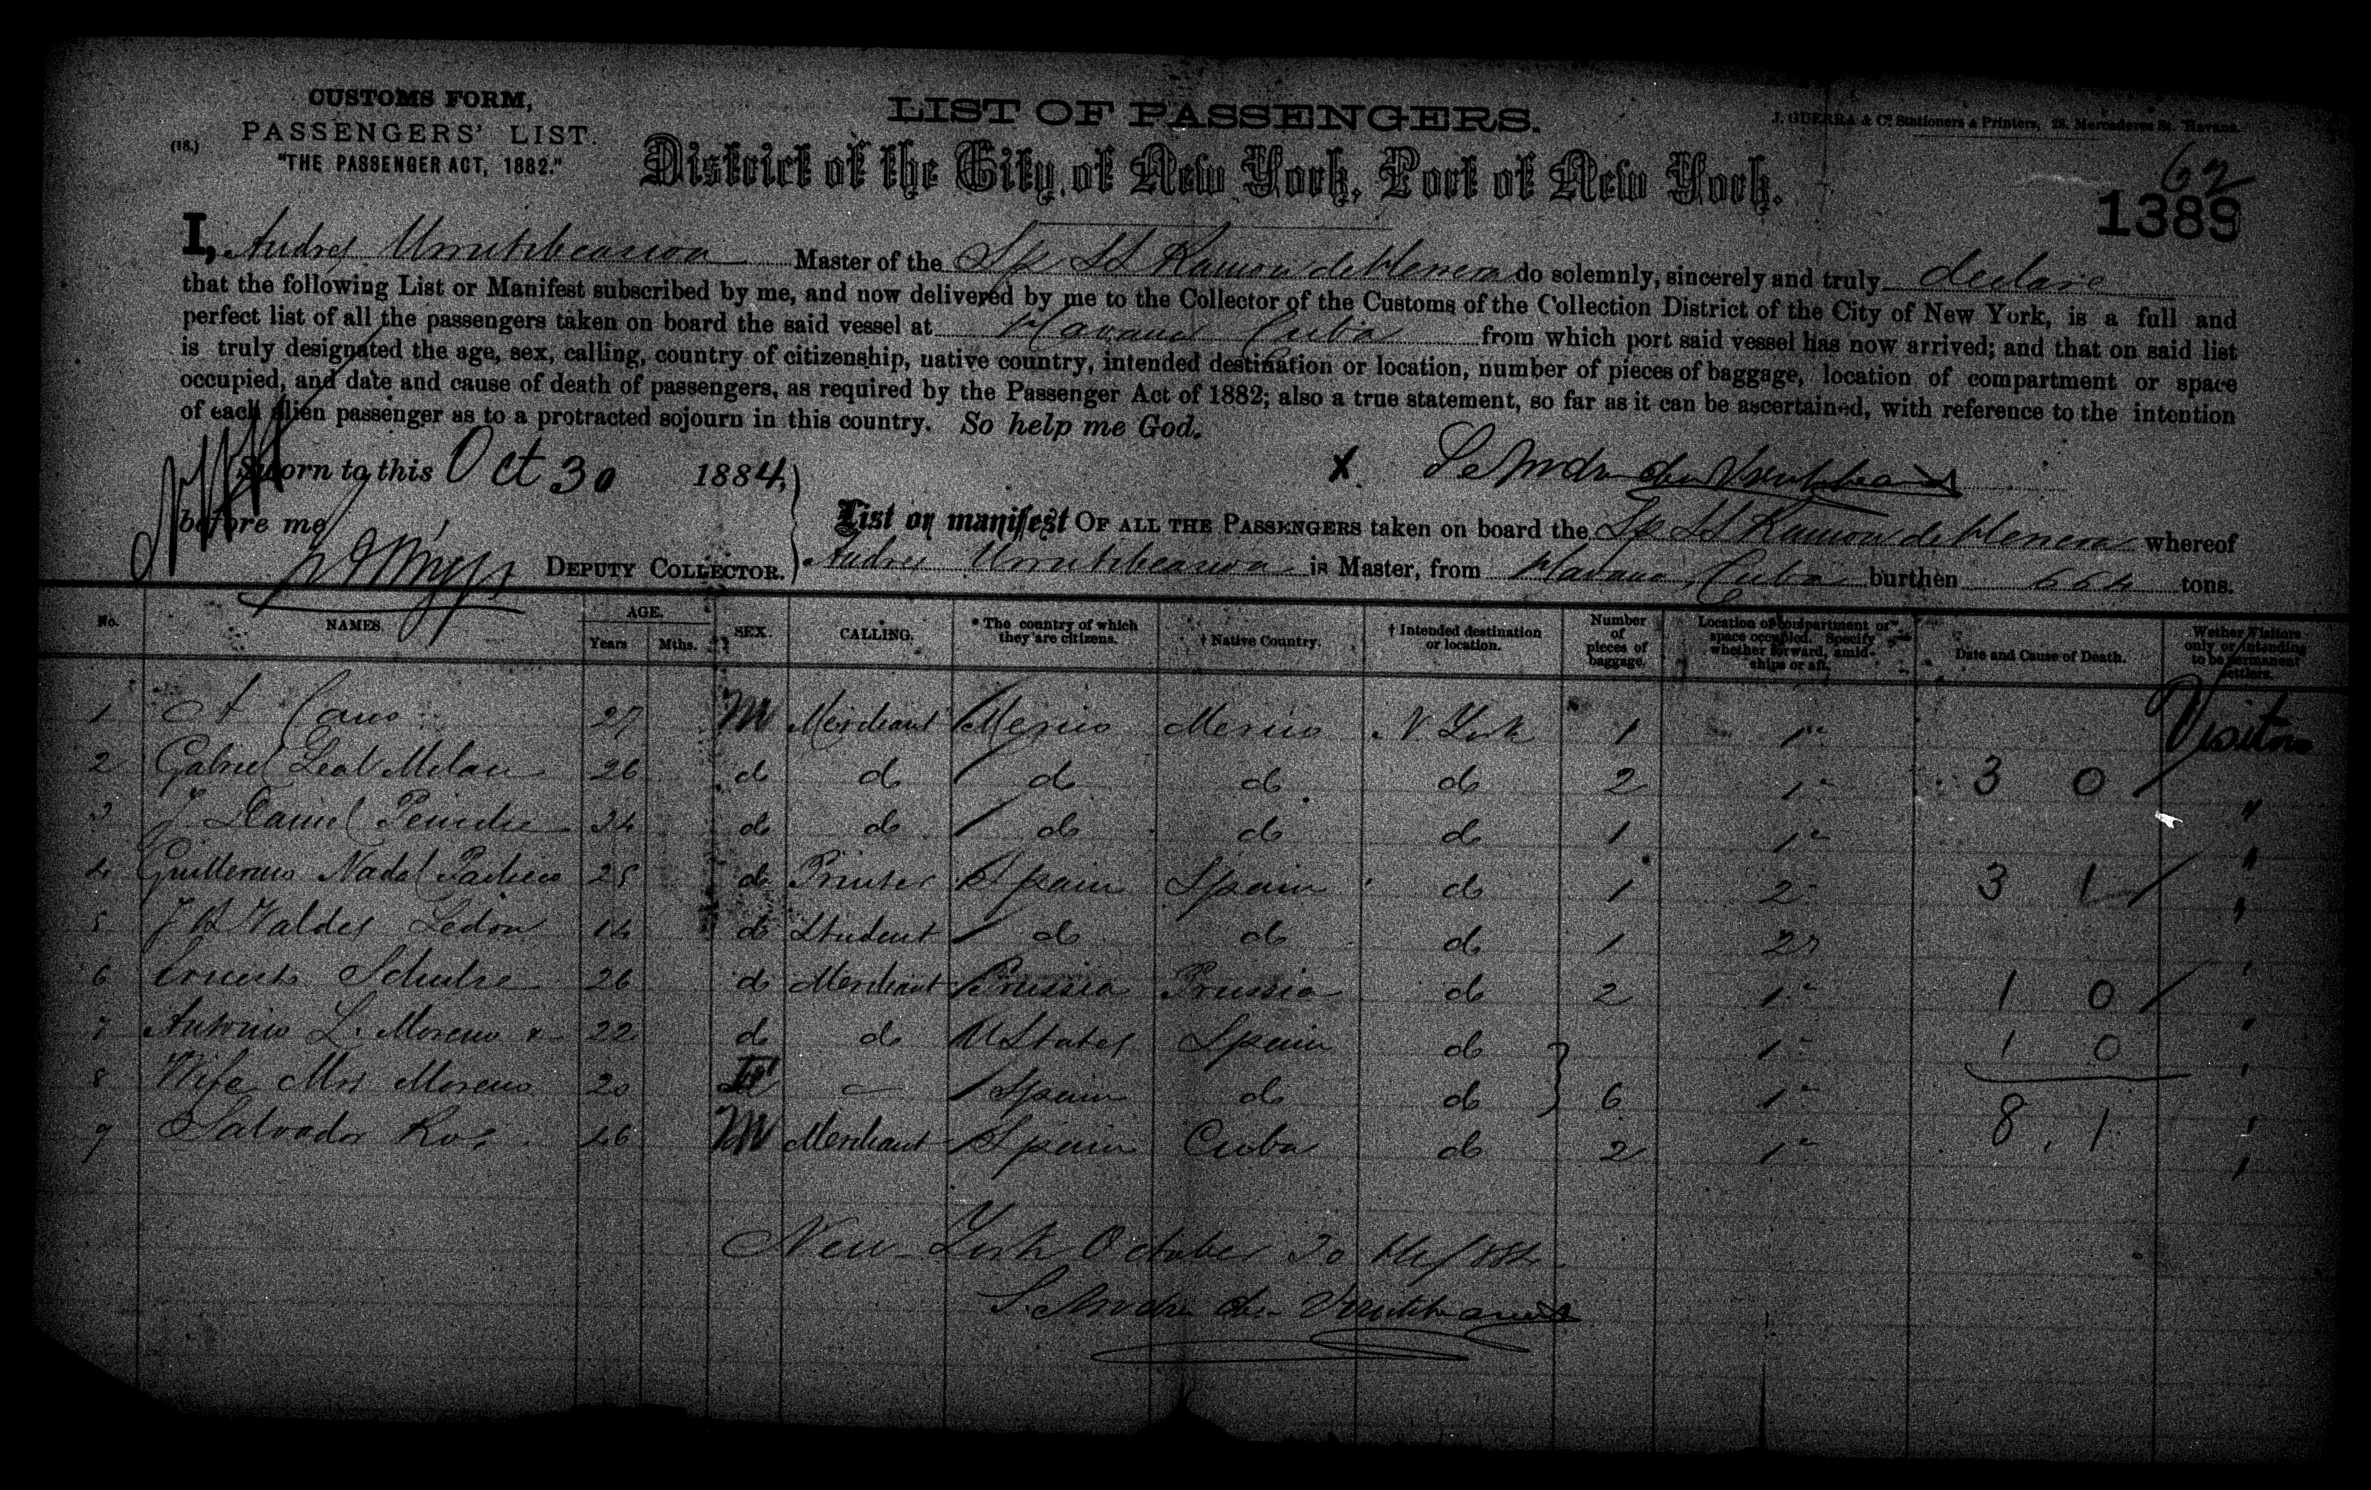 CUSTOMS FORM,
PASSENGERS' LIST.
(18.)
"THE PASSENGER ACT, 1882."
LIST OF PASSENGERS.
J. GUERRA & Co. Stationers & Printers, Mercaderes St. Havana.
District of the City of New York, Port of New York.
62
1389
I, Andres Master of the Sp SS Ramon de Herrera do solemnly, sincerely and truly declare
that the following List or Manifest subscribed by me, and now delivered by me to the Collector of the Customs of the Collection District of the City of New York, is a full and
perfect list of all the passengers taken on board the said vessel at Havana Cuba from which port said vessel has now arrived; and that on said list
is truly designated the age, sex, calling, country of citizenship, native country, intended destination or location, number of pieces of baggage, location of compartment or space
occupied, and date and cause of death of passengers, as required by the Passenger Act of 1882; also a true statement, so far as it can be ascertained, with reference to the intention
of each alien passenger as to a protracted sojourn in this country. So help me God.
Sworn to this Oct 30 1884,
X
before me
DEPUTY COLLECTOR.
List or manifest OF ALL THE PASSENGERS taken on board the Sp SS Ramon de Herrera whereof
Andres is Master, from Havana, Cuba burthen tons.
No. NAMES. AGE. Years Mths. SEX. CALLING. * The country of which they are citizens. † Native Country. † Intended destination or location. Number of pieces of baggage. Location of compartment or space occupied. Specify whether forward, amidships or aft. Date and Cause of Death. Wether Visitors only or intending to be permanent settlers.
1 A Cano 27 M Merchant Mexico Mexico N York 1 1a Visitors
2 Gabriel Leal Milan 26 do do do do do 2 1a 3 0 "
3 J Daniel 24 do do do do do 1 1a "
4 Guillermo Nadal Pacheco 25 do Printer Spain Spain do 1 2a 3 1 "
5 J Valdes Ledon 14 do Student do do do 1 2a "
6 Ernesto Schulze 26 do Merchant Prussia Prussia do 2 1a 1 0 "
7 Antonio L. Moreno & 22 do do U States Spain do 1a 1 0 "
8 Wife Mrs Moreno 20 F — Spain do do 6 1a "
9 Salvador Ros 46 M Merchant Spain Cuba do 2 1a 8, 1 "
New York October 30 th/884